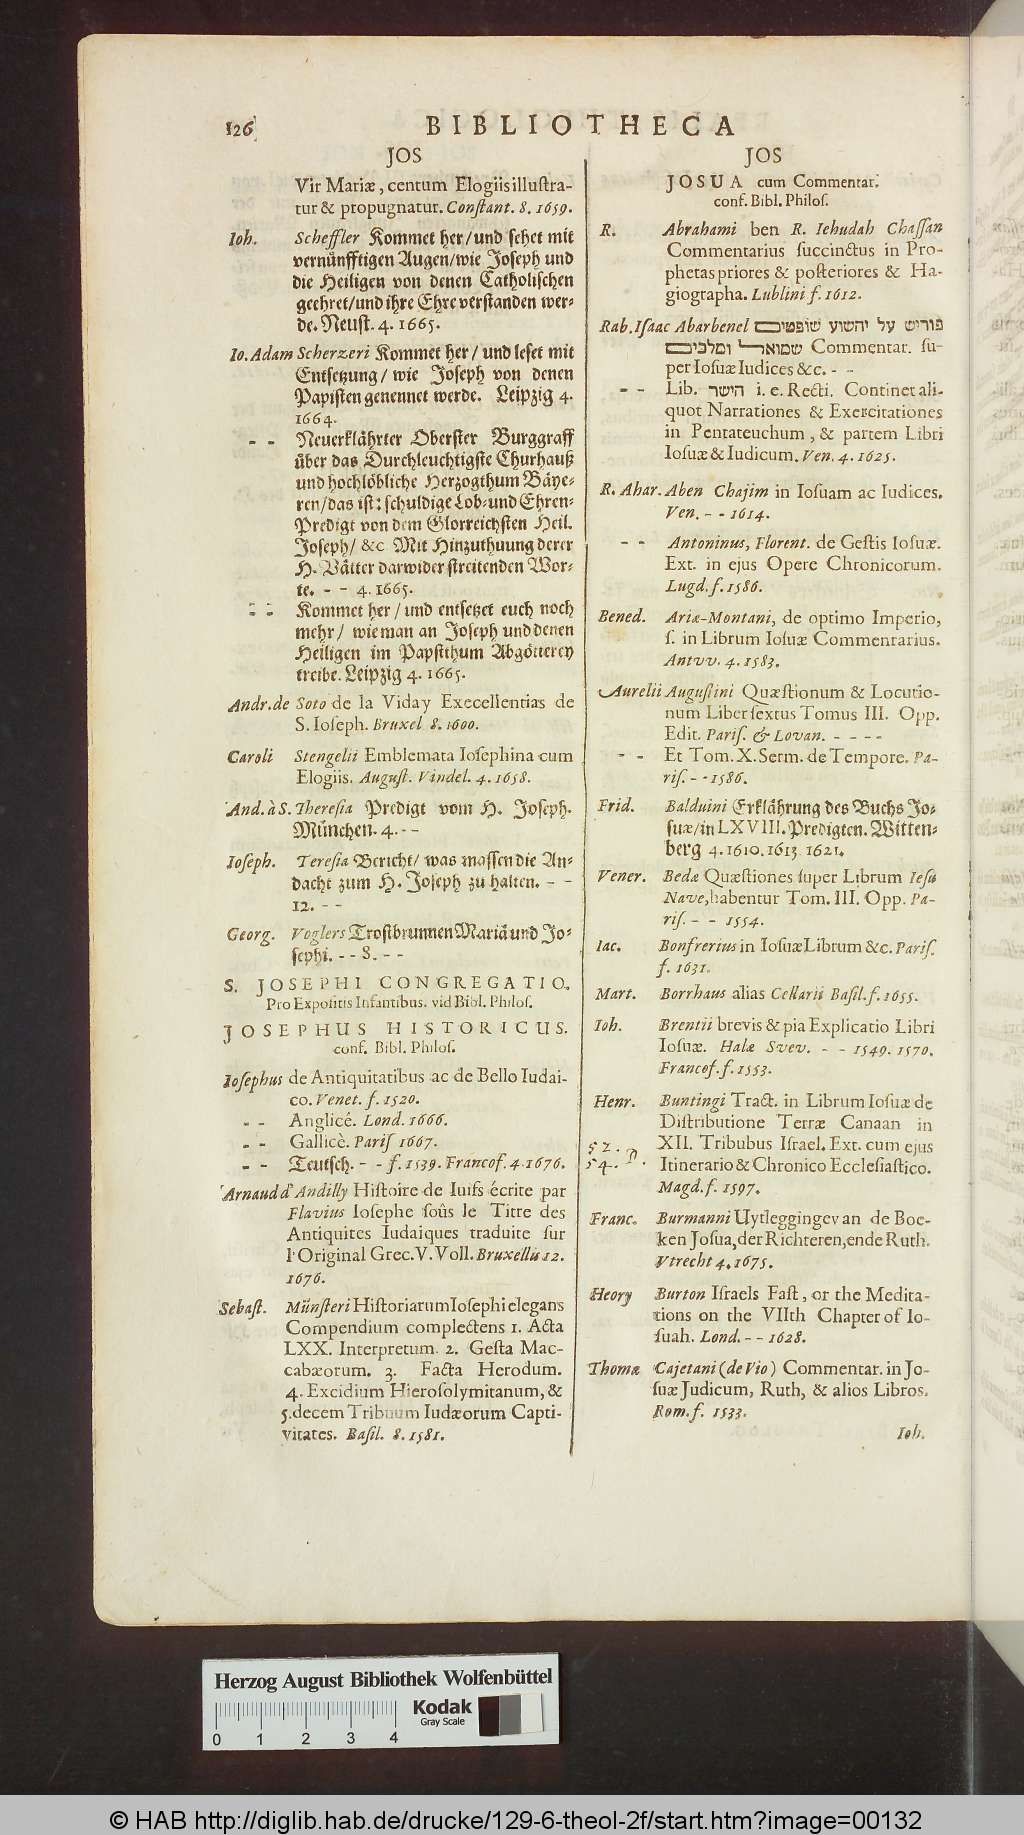 126 BIBLIOTHECA
JOS
Vir Mariæ, centum Elogiis illuſtra-
tur & propugnatur. Conſtant. 8. 1659.
Ioh. Scheffler Kommet her/und ſehet mit
vernuͤnfftigen Augen/wie Joſeph und
die Heiligen von denen Catholiſchen
geehret/und ihre Ehre verſtanden wer-
de. Neuſt. 4. 1665.
Io. Adam Scherzeri Kommet her/ und leſet mit
Entſetzung/ wie Joſeph von denen
Papiſten genennet werde. Leipzig 4.
1664.
- - Neuerklaͤhrter Oberſter Burggraff
uͤber das Durchleuchtigſte Churhauß
und hochloͤbliche Herzogthum Baͤye-
ren/das iſt: ſchuldige Lob-und Ehren-
Predigt von dem Glorreichſten Heil.
Joſeph/ &c Mit Hinzuthuung derer
H. Vaͤtter darwider ſtreitenden Wor-
te. - - 4. 1665.
- - Kommet her/und entſetzet euch noch
mehr/ wie man an Joſeph und denen
Heiligen im Papſtthum Abgoͤtterey
treibe. Leipzig 4. 1665.
Andr. de Soto de la Viday Execellentias de
S. Ioſeph. Bruxel 8. 1600.
Caroli Stengelii Emblemata Ioſephina cum
Elogiis. Auguſt. Vindel. 4. 1658.
And. à S. Thereſia Predigt vom H. Joſeph.
Muͤnchen. 4. - -
Ioſeph. Tereſia Bericht/ was maſſen die An-
dacht zum H. Joſeph zu halten. - -
12. - -
Georg. Voglers Troſtbrunnen Mariaͤ und Jo-
ſephi. - - 8. - -
S. JOSEPHI CONGREGATIO.
Pro Expoſitis Infantibus. vid Bibl. Philoſ.
JOSEPHUS HISTORICUS.
conf. Bibl. Philoſ.
Ioſephus de Antiquitatibus ac de Bello Iudai-
co. Venet. f. 1520.
- - Anglicè. Lond. 1666.
- - Gallicè. Pariſ 1667.
- - Teutſch. - - f. 1539. Francof. 4. 1676.
Arnaud d' Andilly Hiſtoire de Iuifs écrite par
Flavius Ioſephe ſoûs le Titre des
Antiquites Iudaiques traduite ſur
l'Original Grec. V. Voll. Bruxellis 12.
1676.
Sebaſt. Münſteri Hiſtoriarum Ioſephi elegans
Compendium complectens 1. Acta
LXX. Interpretum. 2. Geſta Mac-
cabæorum. 3. Facta Herodum.
4. Excidium Hieroſolymitanum, &
5. decem Tribuum Iudæorum Capti-
vitates. Baſil. 8. 1581.
JOS
JOSUA cum Commentar.
conf. Bibl. Philoſ.
R. Abrahami ben R. Iehudah Chaſſan
Commentarius ſuccinctus in Pro-
phetas priores & poſteriores & Ha-
giographa. Lublini f. 1612.
Rab. Iſaac Abarbenel פוריש על יהשוע שופטים
שמואל ומלכים Commentar. ſu-
per Ioſuæ Iudices &c. - -
- - Lib. הישר i. e. Recti. Continet ali-
quot Narrationes & Exercitationes
in Pentateuchum, & partem Libri
Ioſuæ & Iudicum. Ven. 4. 1625.
R. Ahar. Aben Chajim in Ioſuam ac Iudices.
Ven. - - 1614.
- - Antoninus, Florent. de Geſtis Ioſuæ.
Ext. in ejus Opere Chronicorum.
Lugd. f. 1586.
Bened. Ariæ-Montani, de optimo Imperio,
ſ. in Librum Ioſuæ Commentarius.
Antvv. 4. 1583.
Aurelii Auguſtini Quæſtionum & Locutio-
num Liber ſextus Tomus III. Opp.
Edit. Pariſ. & Lovan. - - - -
- - Et Tom. X. Serm. de Tempore. Pa-
riſ. - - 1586.
Frid. Balduini Erklaͤhrung des Buchs Jo-
ſuæ/in LXVIII. Predigten. Witten-
berg 4. 1610. 1613. 1621.
Vener. Bedæ Quæſtiones ſuper Librum Ieſu
Nave, habentur Tom. III. Opp. Pa-
riſ. - - 1554.
Iac. Bonfrerius in Ioſuæ Librum &c. Pariſ.
f. 1631.
Mart. Borrhaus alias Cellarii Baſil. f. 1655.
Ioh. Brentii brevis & pia Explicatio Libri
Ioſuæ. Halæ Svev. - - 1549. 1570.
Francof. f. 1553.
Henr. Buntingi Tract. in Librum Ioſuæ de
Diſtributione Terræ Canaan in
52. XII. Tribubus Iſrael. Ext. cum ejus
54. Itinerario & Chronico Eccleſiaſtico.
Magd. f. 1597.
Franc. Burmanni Uytleggingev an de Boe-
ken Joſua, der Richteren, ende Ruth.
Vtrecht 4. 1675.
Heory Burton Iſraels Faſt, or the Medita-
tions on the VIIth Chapter of Io-
ſuah. Lond. - - 1628.
Thomæ Cajetani (de Vio) Commentar. in Jo-
ſuæ Judicum, Ruth, & alios Libros.
Rom. f. 1533.
Ioh.
Herzog August Bibliothek Wolfenbüttel
Kodak
Gray Scale
0 1 2 3 4
© HAB http://diglib.hab.de/drucke/129-6-theol-2f/start.htm?image=00132